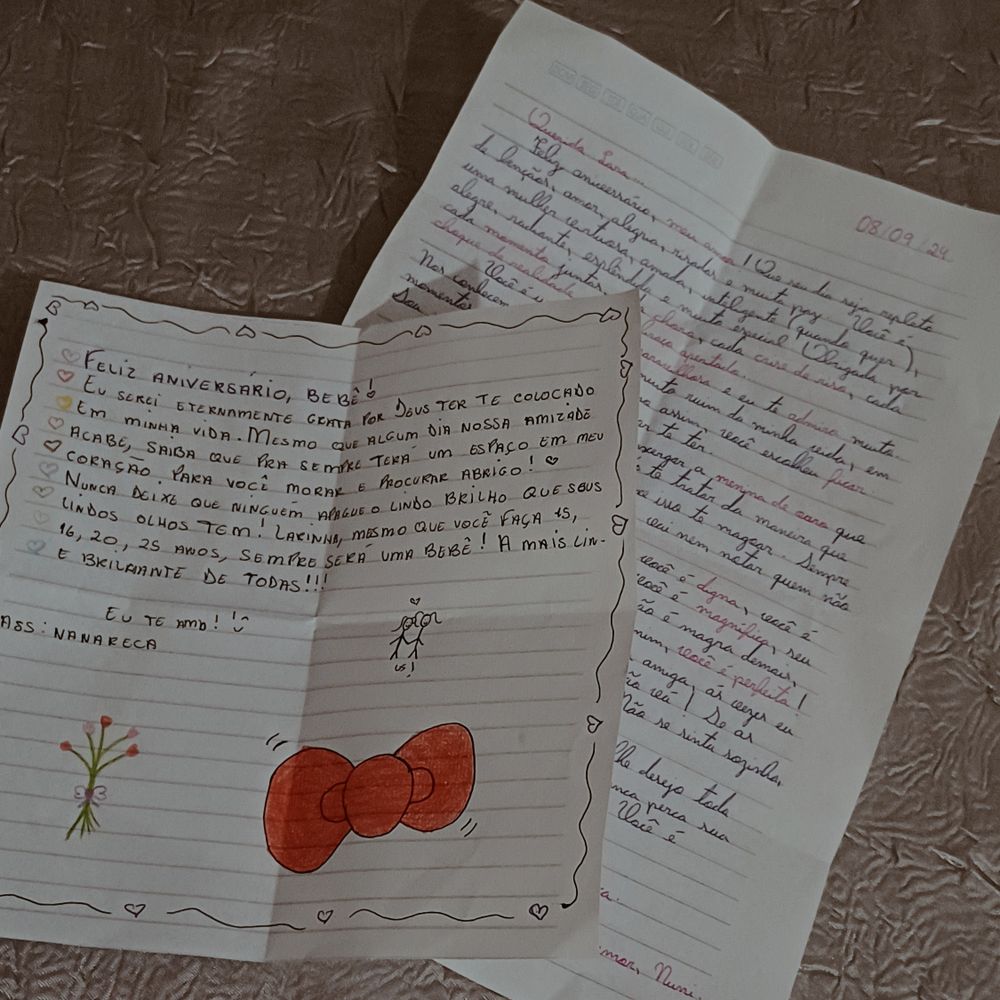 FELIZ ANIVERSÁRIO, BEBÊ!
EU SEREI ETERNAMENTE GRATA POR DEUS TER TE COLOCADO
EM MINHA VIDA. MESMO QUE ALGUM DIA NOSSA AMIZADE
ACABE, SAIBA QUE PRA SEMPRE TERÁ UM ESPAÇO EM MEU
CORAÇÃO PARA VOCÊ MORAR E PROCURAR ABRIGO!
NUNCA DEIXE QUE NINGUEM APAGUE O LINDO BRILHO QUE SEUS
LINDOS OLHOS TEM! LARINHA, MESMO QUE VOCÊ FAÇA 15,
16, 20, 25 ANOS, SEMPRE SERÁ UMA BEBÊ! A MAIS LIN-
E BRILHANTE DE TODAS!!!
EU TE AMO!
ASS: NANARECA
US!
08/09/24
Querida Lara
Feliz aniversário, meu amor! Que seu dia seja repleto
de bençãos, amor, alegria, risadas e muita paz. Você é
uma mulher virtuosa, amada, inteligente (quando quer),
alegre, radiante, esplêndida e muito especial! Obrigada por
cada momento juntas, cada crise de riso, cada
choque de realidade
Você é u maravilhosa e eu te admiro muito.
Nos conhecem muito ruim da minha vida, em
momentos assim, você escolheu ficar.
Sou te ter.
enxergar a menina de ouro que
te tratar da maneira que
isso te magoar. Sempre
vai nem notar quem não
você é digna, você é
você é magnífica, seu
é magra demais,
mim, você é perfeita!
amiga, às vezes eu
vê! Se as
Não se sinta sozinha,
lhe desejo toda
nca perca sua
Você é
mor, Nuni.